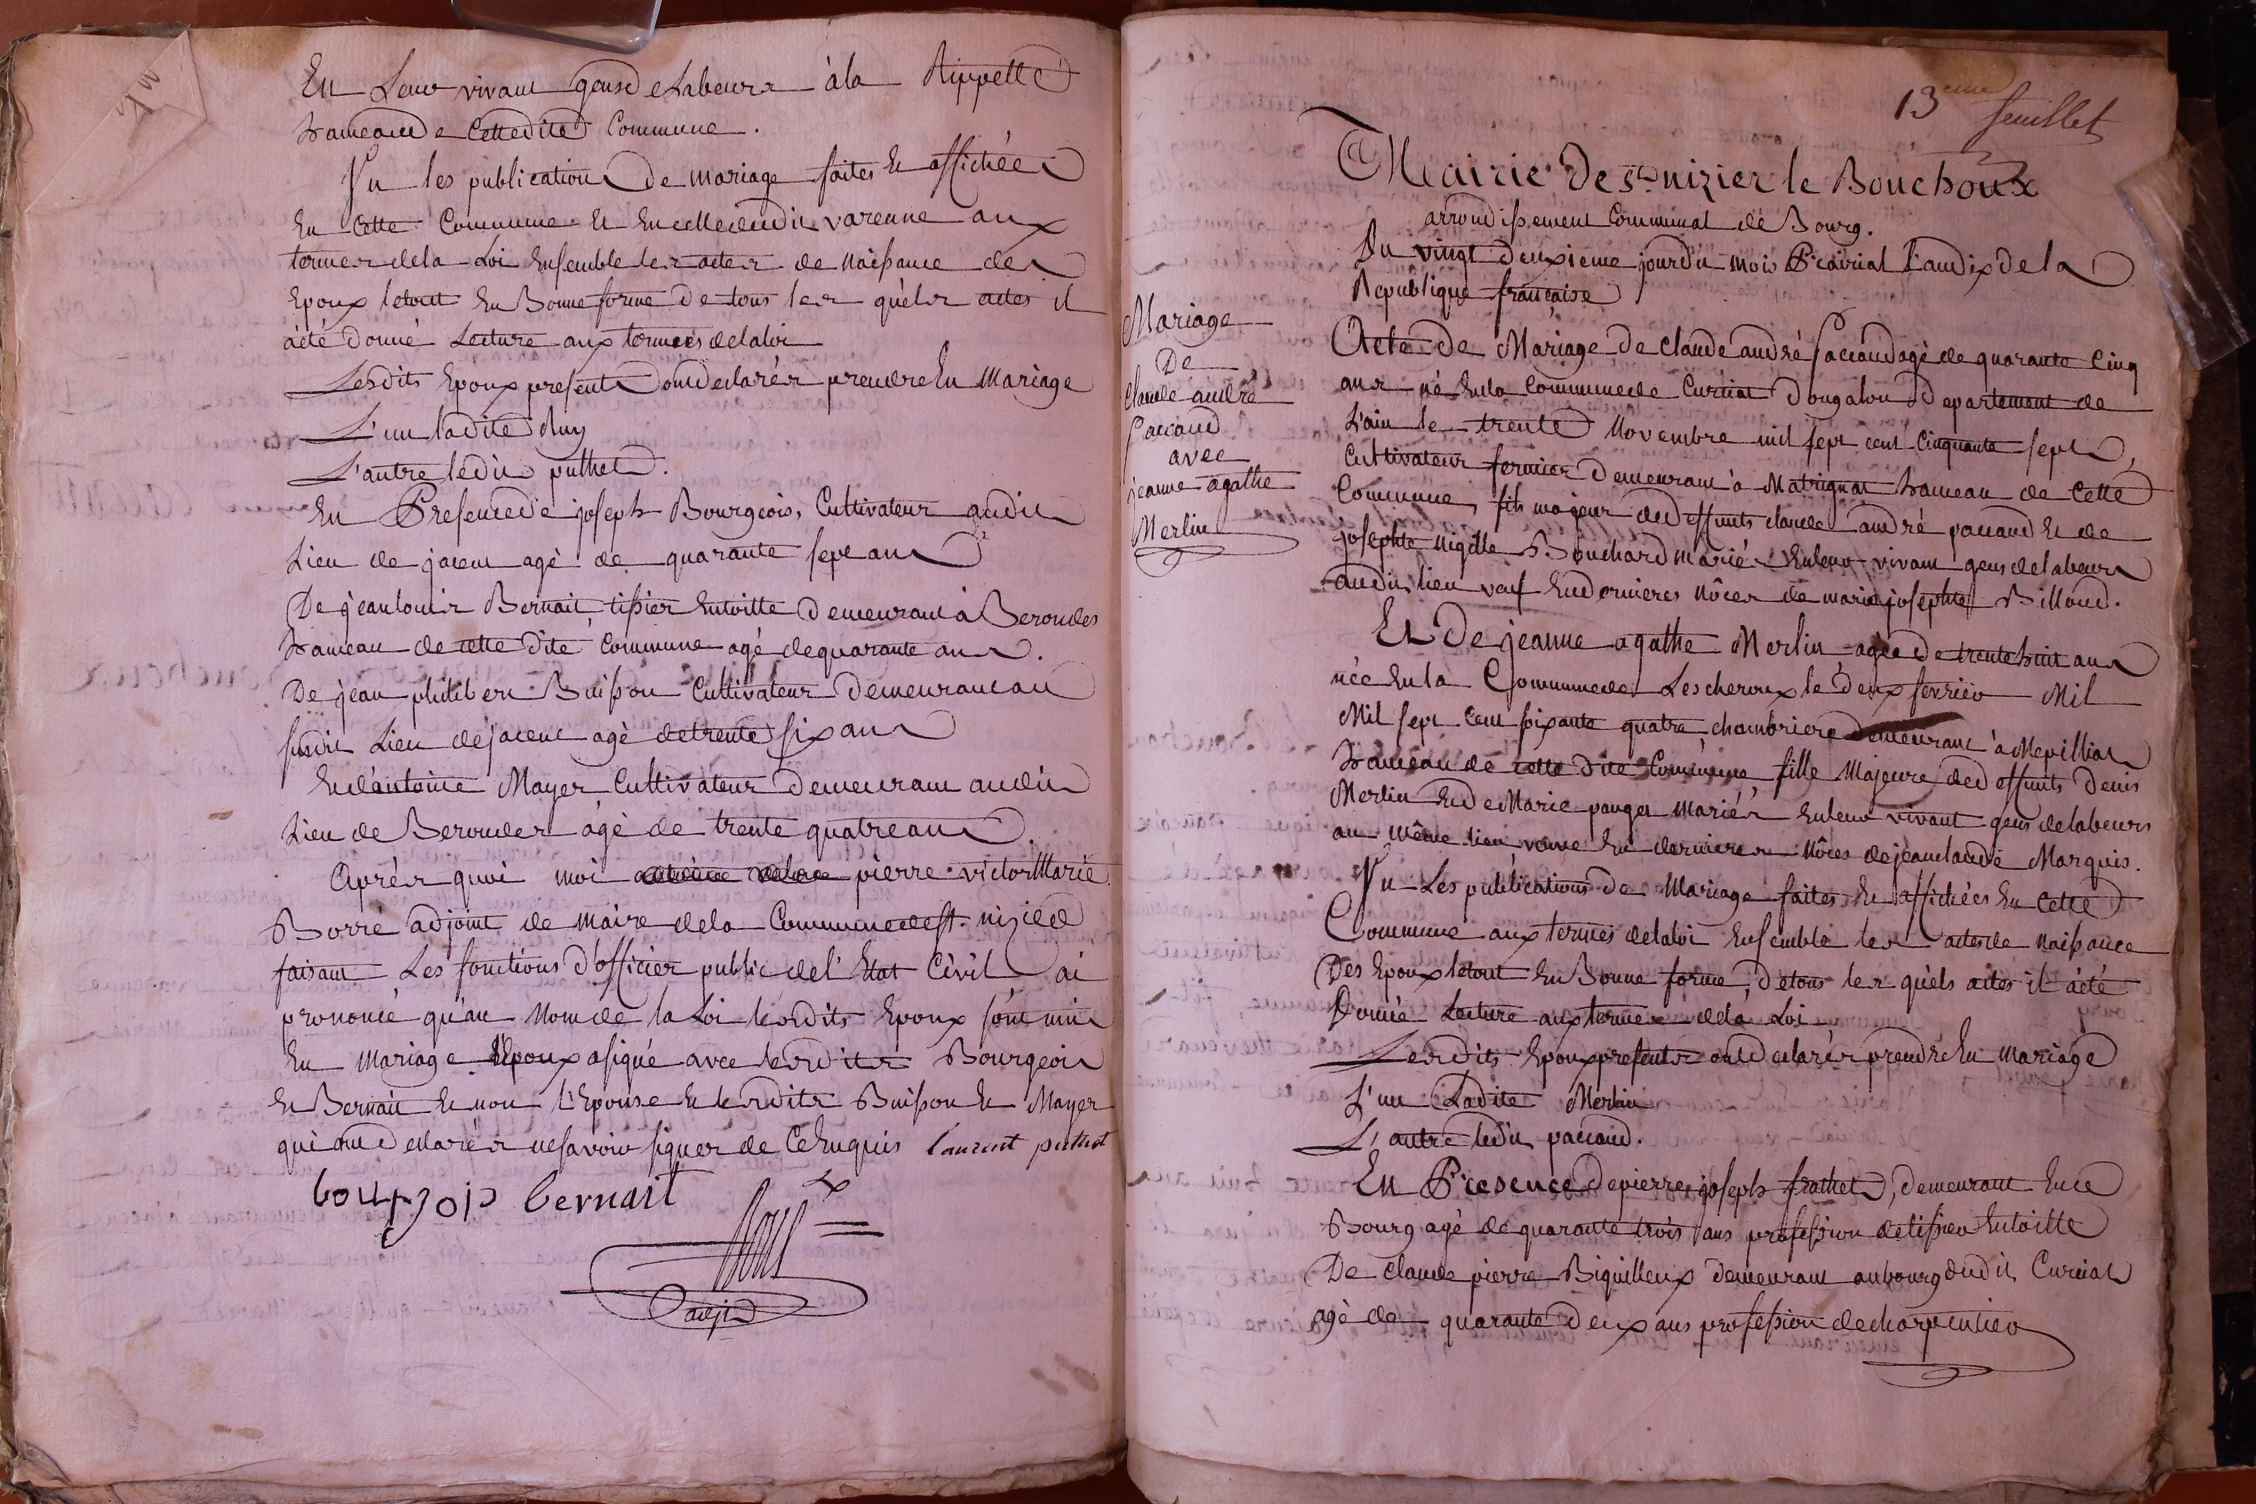 En Leur vivant gens de Labeurs à la Rippette
hameau de Cette dite Commune.
Vu les publications de mariage faites et affichées
En Cette Commune et En celle dudit varenne aux
termes de la Loi Ensemble les actes de Naissance des
Epoux le tout En Bonne forme De tous les quéls actes il
àété donné Lecture aux termes de la loi
Lesdits Epoux presents ont declarér prendre En Mariage
L'un ladite
L'autre ledit puthet.
En Presence de joseph Bourgeois, Cultivateur audit
Lieu de jacent agé de quarante sept ans
De jean louis Bernait tissier Entoille demeurant à Beroudes
hameau de cette dite Commune agé de quarante ans.
De jean philibert Buisson Cultivateur demeurant au
susdit Lieu de jacent agé de trente six ans
Et d'antoine Mayer Cultivateur demeurant audit
Lieu de Beroudes agé de trente quatre ans
Aprés quoi moi pierre victor Marie
Borré adjoint de maire de la Commune de st. nizied
faisant Les fonctions d'officier public de l'Etat Civil ai
prononcé qu'au Nom de la Loi lesdits Epoux sont unis
En Mariage L'Epoux a signé avec lesdits Bourgeois
Et Bernait Et non L'Epouse Et lesdits Buisson Et Mayer
qui ont declarér ne savoir signer de Ce Enquis laurent puthet
bourgois bernait
adjt
13eme feuillet
Mairie De st nizier le Bouchoux
arrondissement Communal de Bourg.
Du vingt deuxieme jour du mois Prairial l'an dix de la
Republique française
Mariage
De
Claude andré
Paccaud
avec
jeanne agathe
Merlin
Acte de Mariage de Claude andré Paccaud agé de quarante Cinq
ans né En la Commune de Curciat Dongalon departement de
L'ain le trente Novembre mil sept cent Cinquante sept,
Cultivateur fermier demeurant à Matrignat hameau de Cette
Commune, fils majeur des deffunts claude andré paccaud Et de
josephte Bouchard mariés En leur vivant gens de labeurs
audit lieu veuf En dernieres nôces de marie josephte Billoud.
Et De jeanne agathe Merlin agée de trente huit ans
née En la Commune de Lescheroux le deux fevrier Mil
Mil sept Cent soixante quatre chambriere demeurant à Mepilliat
hameau de cette dite Commune, fille Majeure des deffunts Denis
Merlin Et de Marie pauget Mariés En leur vivant gens de labeurs
au même lieu veuve En dernieres nôces de jean claude Marquis.
Vu Les publications de Mariage faites Et affichées En Cette
Commune aux termes de la loi Ensemble les actes de Naissance
Des Epoux le tout En Bonne forme, de tous les quéls actes il àété
Donné Lecture aux termes de la Loi
Lesdits Epoux presents ont declarér prendre En Mariage
L'un Ladite Merlin
L'autre ledit paccaud.
En Presence de pierre joseph frathet, demeurant En ce
Bourg agé de quarante trois ans profession de tissier Entoille
De Claude pierre Biguilleux demeurant au bourg dudit Curciat
agé de quarante deux ans profession de charpentier